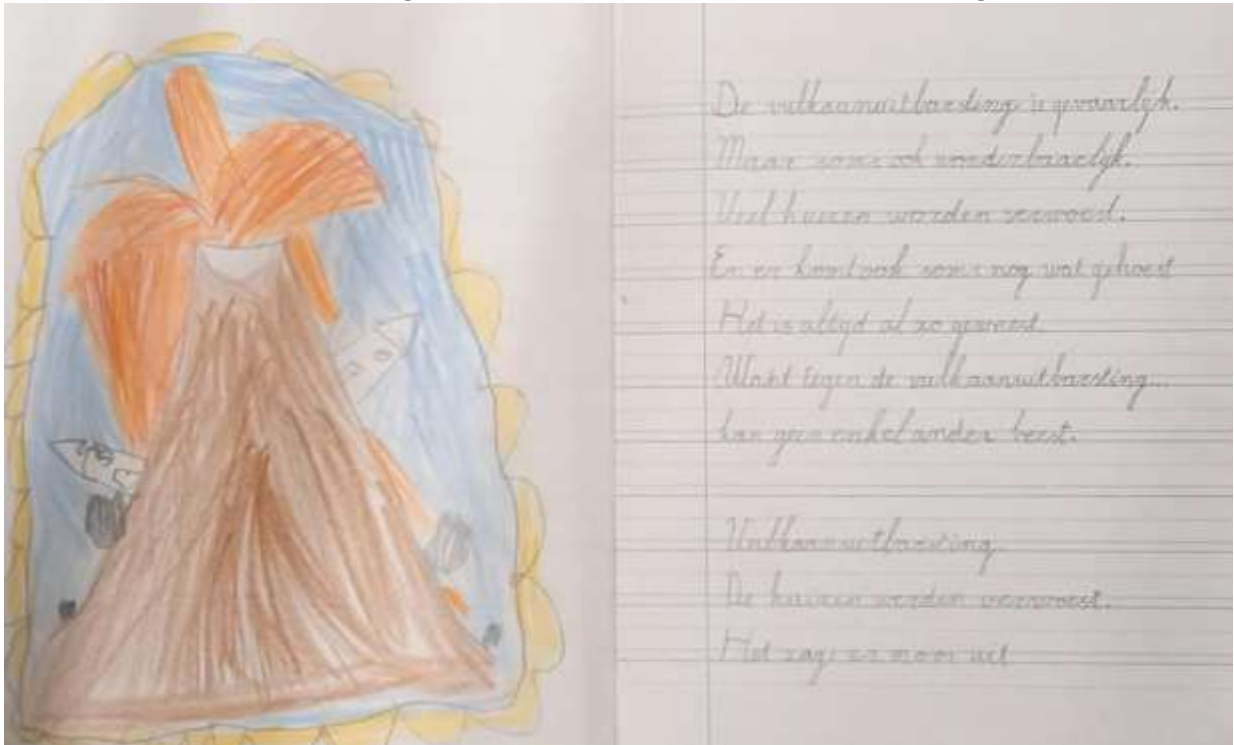 De vulkaanuitbarsting is gevaarlijk.
Maar soms ook wonderbaarlijk.
Veel huizen worden verwoest.
En er komt ook soms nog wat gehoest
Het is altijd al zo geweest.
Want tegen de vulkaanuitbarsting...
kan geen enkel ander beest.
Vulkaanuitbarsting
De huizen werden verwoest.
Het zag er mooi uit